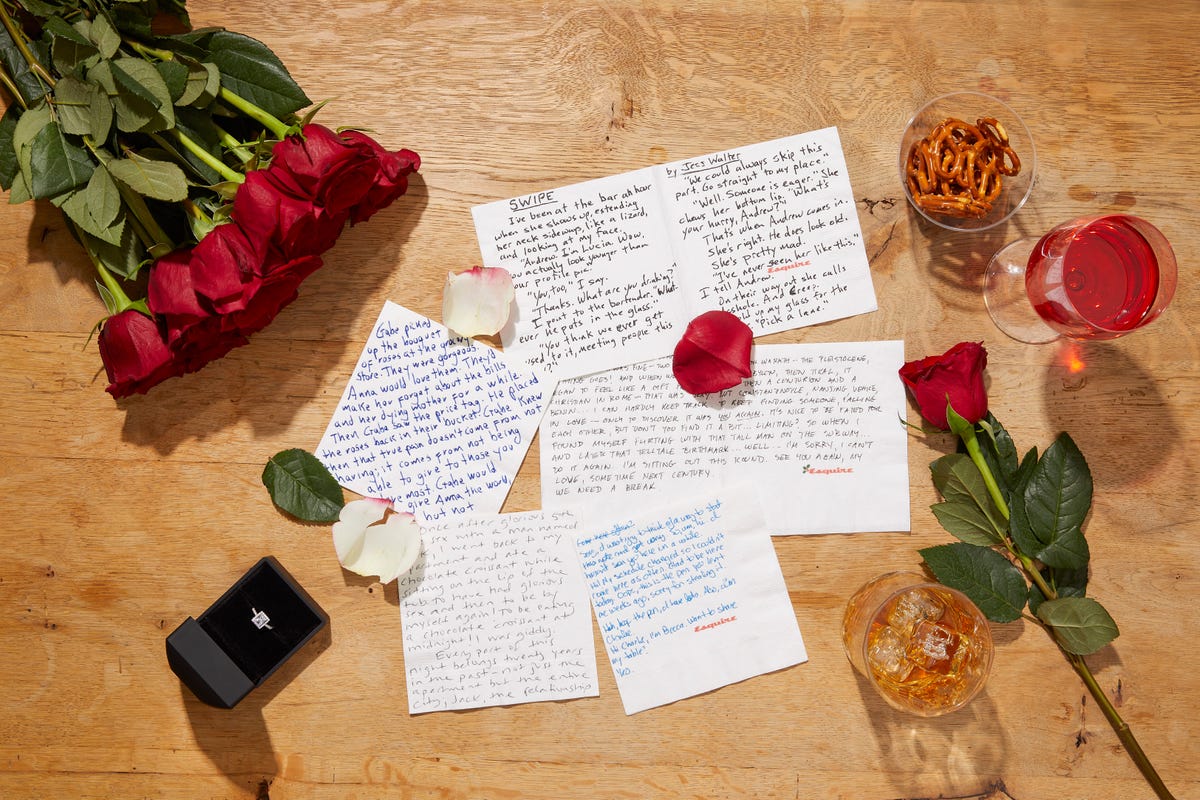 SWIPE
I've been at the bar an hour
when she shows up, extending
her neck sideways, like a lizard,
and looking at my face.
"Andrew. I'm Lucia. Wow.
You actually look younger than
your profile pic."
"You, too," I say.
"Thanks. What are you drinking?"
I point to the bartender. "What-
ever he puts in the glass."
"You think we ever get
used to it, meeting people this
by Jess Walter
"We could always skip this
part. Go straight to my place."
"Well. Someone is eager." She
chews her bottom lip. "What's
your hurry, Andrew?"
That's when Andrew comes in.
She's right. He does look old.
She's pretty mad.
"I've never seen her like this,"
I tell Andrew.
Esquire
On their way out she calls
asshole. And creep.
hold up my glass for the
"Pick a lane."
Gabe picked
up the bouquet
of roses at the grocery
store. They were gorgeous.
Anna would love them. They'd
make her forget about the bills
and her dying mother for a while.
Then Gabe saw the price tag. He placed
the roses back in their bucket. Gabe knew
then that true pain doesn't come from not
having; it comes from not being
able to give to those you
love most. Gabe would
give Anna the world,
but not
WAS FINE—TWO WARATH—THE PLEISTOCENE,
THING GOES! AND WHEN BABYLON, THEN IKAL, IT
BEGAN TO FEEL LIKE A GIFT THEN A CENTURION AND A
CHRISTIAN IN ROME—THAT WAS BUT CONSTANTINOPLE, NANJING, VENICE,
BENIN... I CAN HARDLY KEEP TRACK TO KEEP FINDING SOMEONE, FALLING
IN LOVE—ONLY TO DISCOVER IT WAS YOU AGAIN. IT'S NICE TO BE FATED FOR
EACH OTHER, BUT DON'T YOU FIND IT A BIT... LIMITING? SO WHEN I
FOUND MYSELF FLIRTING WITH THAT TALL MAN ON THE SUBWAY...
AND LATER THAT TELLTALE BIRTHMARK... WELL... I'M SORRY, I CAN'T
DO IT AGAIN. I'M SITTING OUT THIS ROUND. SEE YOU AGAIN, MY
LOVE, SOMETIME NEXT CENTURY.
WE NEED A BREAK.
Esquire
Once after glorious
sex with a man named
I went back to my
apartment and ate a
chocolate croissant while
sitting on the lip of the
tub. To have had glorious
sex and then to be by
myself again! To be eating
a chocolate croissant at
midnight! I was giddy.
Every part of this
night belongs twenty years
in the past—not just the
apartment but the entire
city, Jack, the relationship
trying to think of a way to start
this note and got wavy.
haven't seen you here in a while.
Hi! My schedule changed so I couldn't
come here as often. Glad to be here
today. Oops, this is the pen you lent
me weeks ago, sorry for stealing it.
Hah, keep the pen, I have lots. Also, I'm
Charlie.
Hi Charlie, I'm Becca. Want to share
my table?
Yes.
Esquire